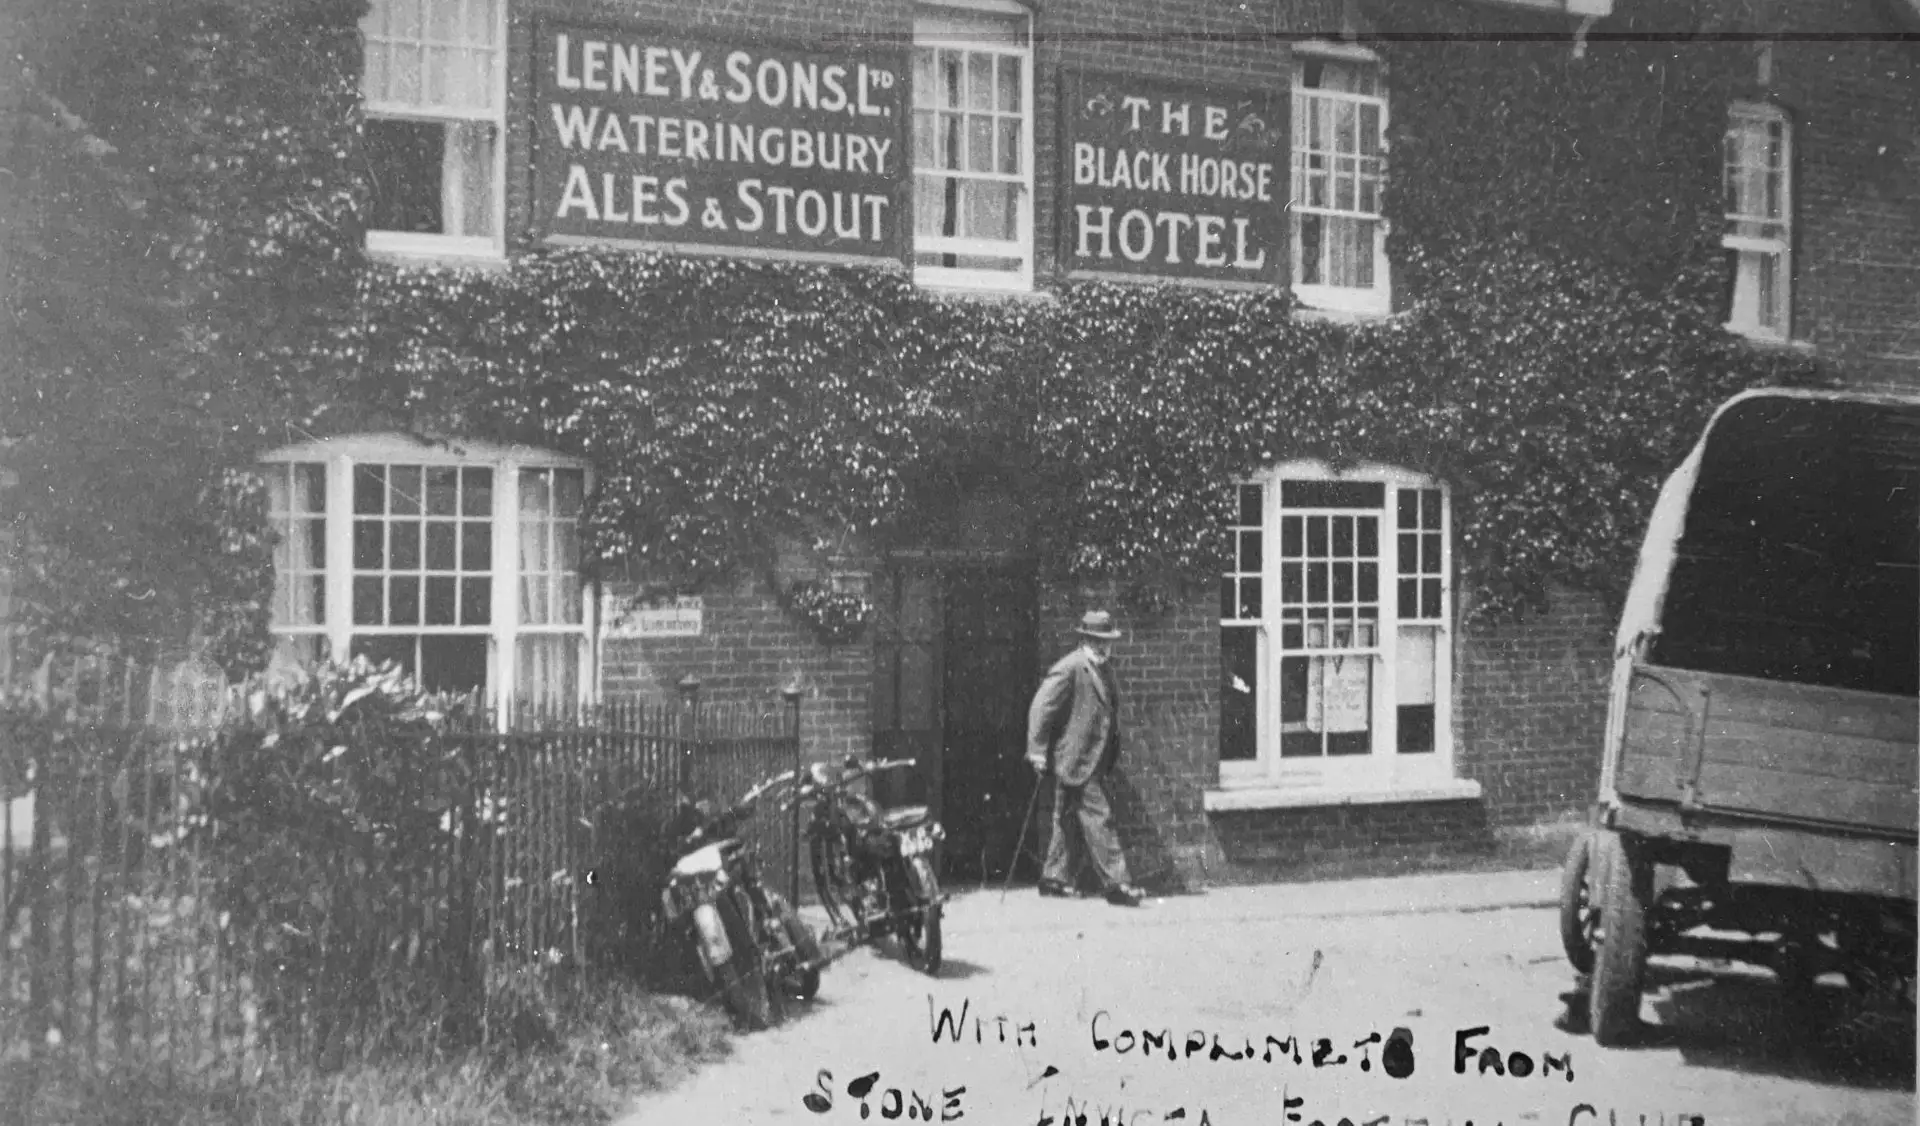 LENEY & SONS, LTD.
WATERINGBURY
ALES & STOUT
THE
BLACK HORSE
HOTEL
WITH COMPLIMETS FROM
STONE INVICTA FOOTBALL CLUB